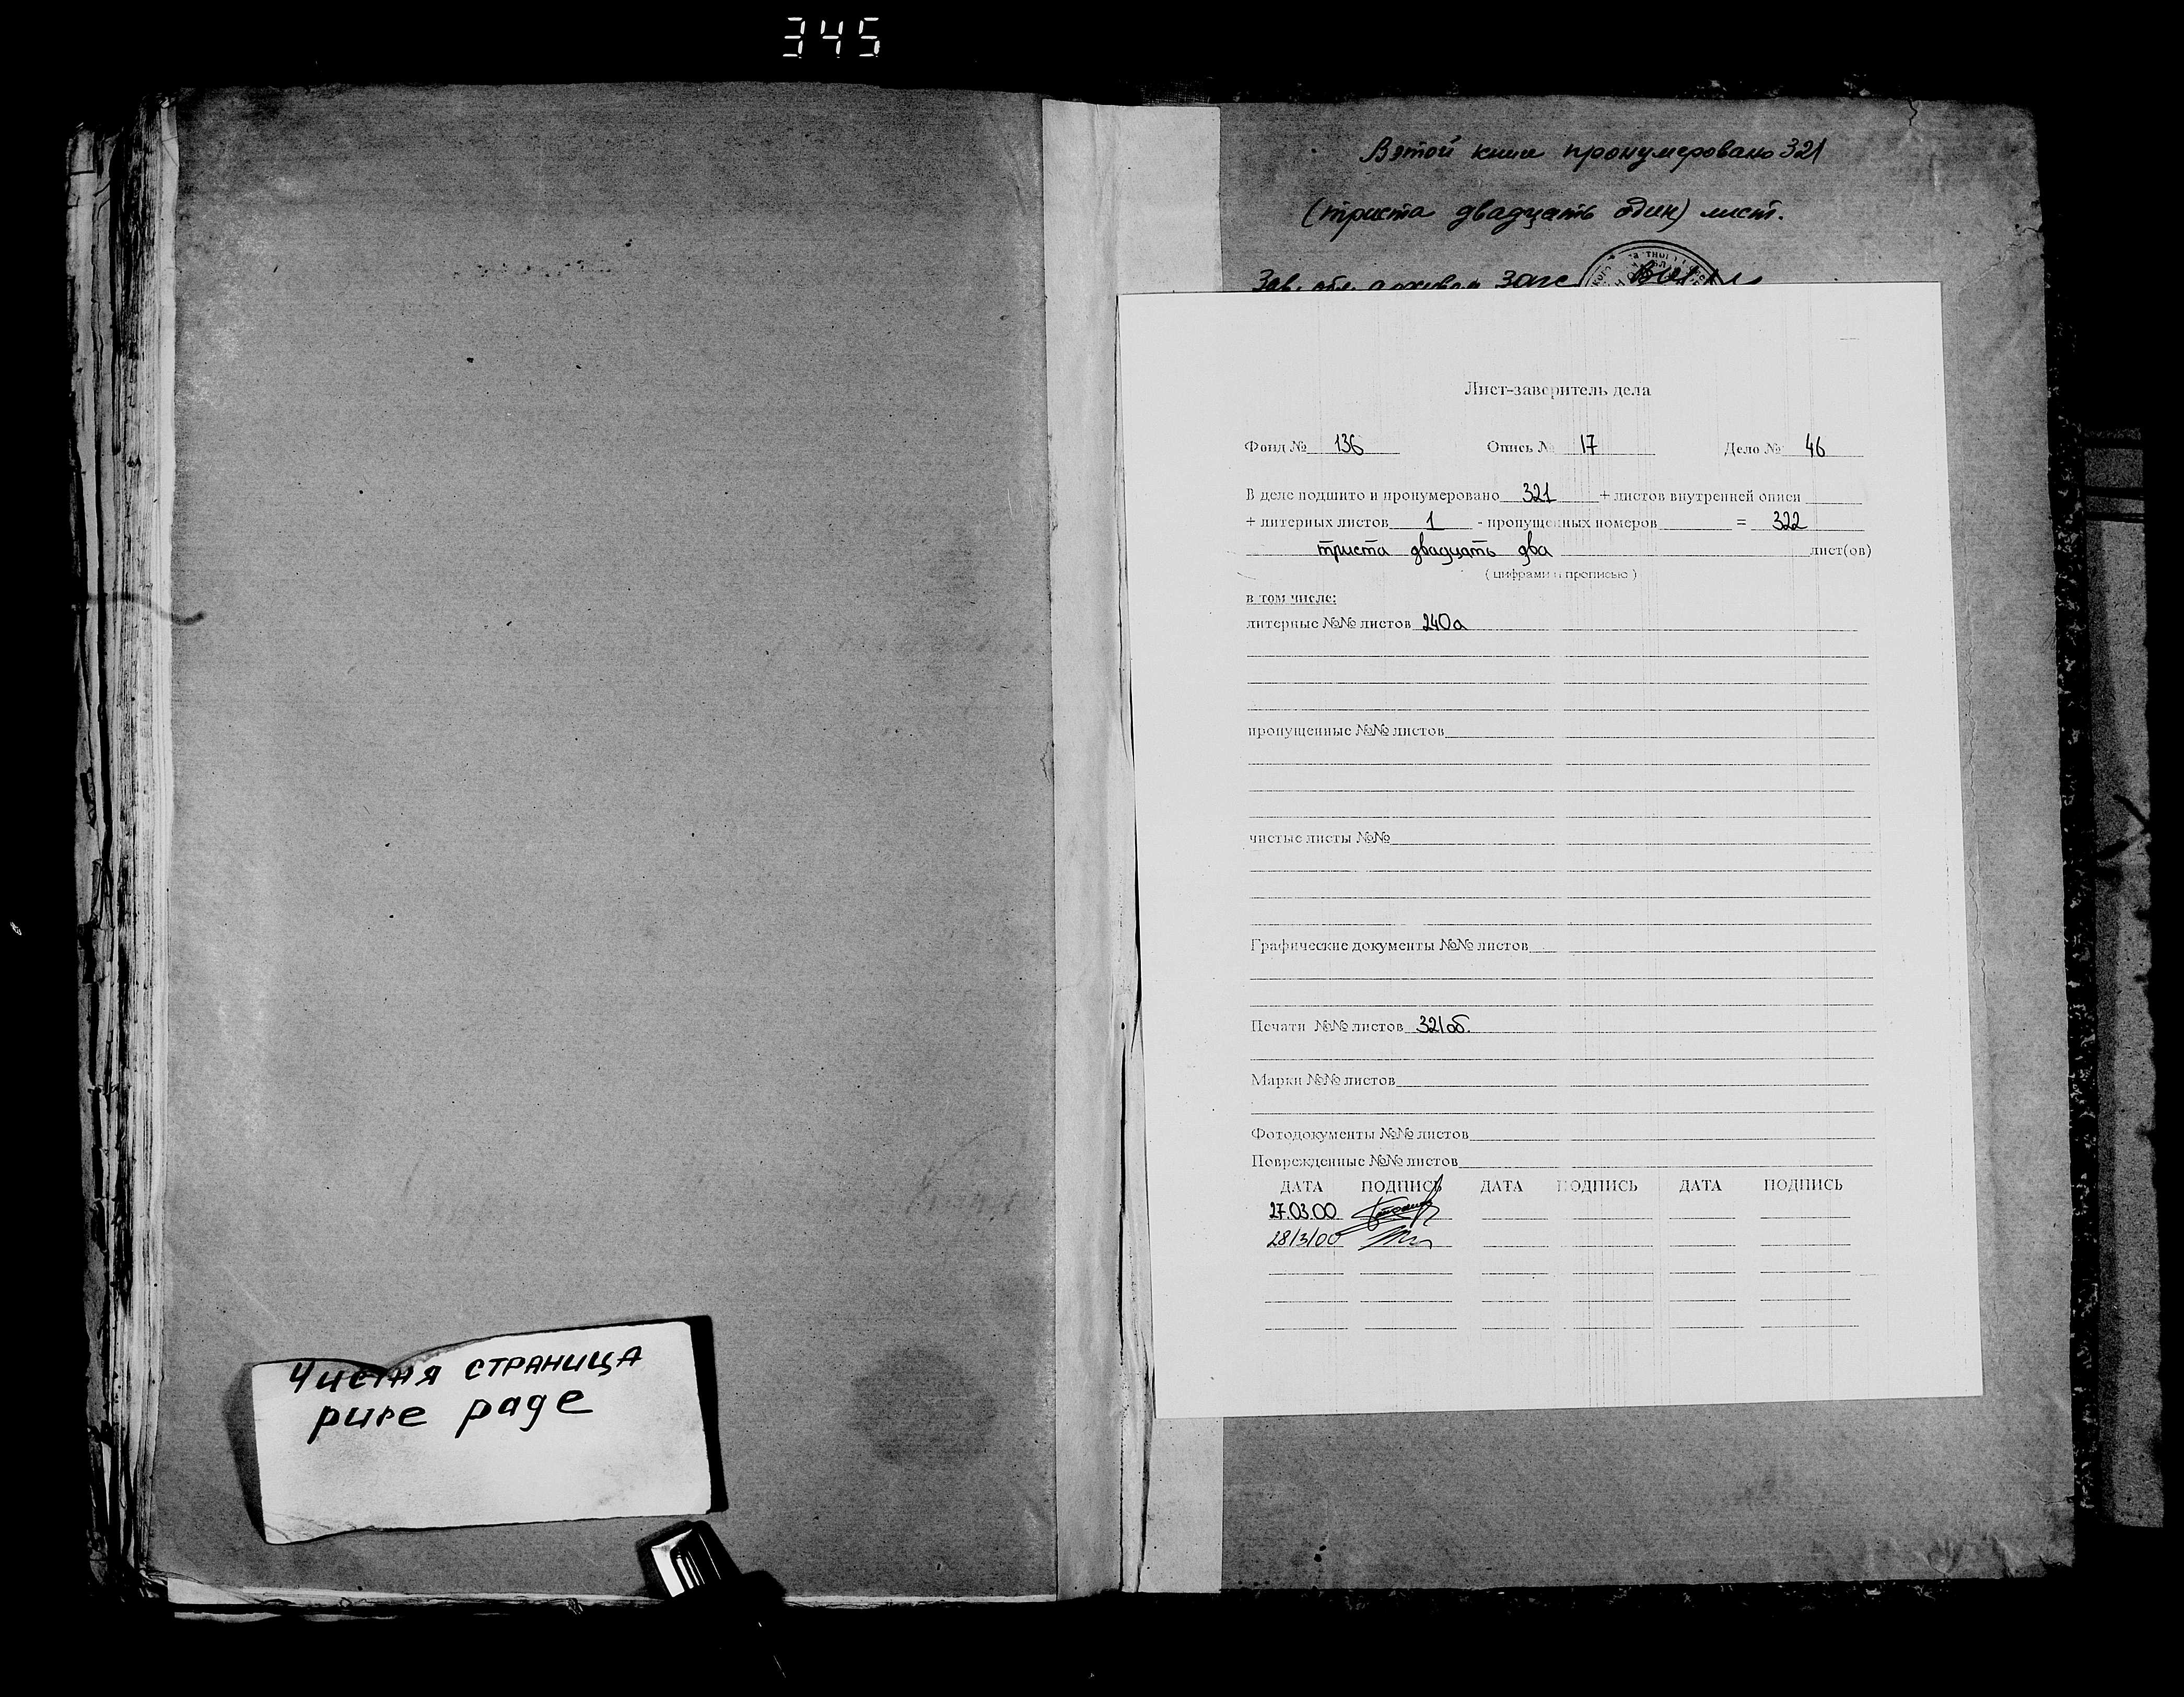 345
В этой книге пронумеровано 321
(триста двадцать один) лист.
Зав. обл. архивом ЗАГС
Лист-заверитель дела
Фонд № 136 Опись № 17 Дело № 46
В деле подшито и пронумеровано 321 + листов внутренней описи
+ литерных листов 1 - пропущенных номеров = 322
триста двадцать два лист(ов)
( цифрами и прописью )
в том числе:
литерные №№ листов 240а
пропущенные №№ листов
чистые листы №№
Графические документы №№ листов
Печати №№ листов 321об.
Марки №№ листов
Фотодокументы №№ листов
Поврежденные №№ листов
ДАТА ПОДПИСЬ ДАТА ПОДПИСЬ ДАТА ПОДПИСЬ
27.03.00
28/3/00
Чистая СТРАНИЦА
pure page